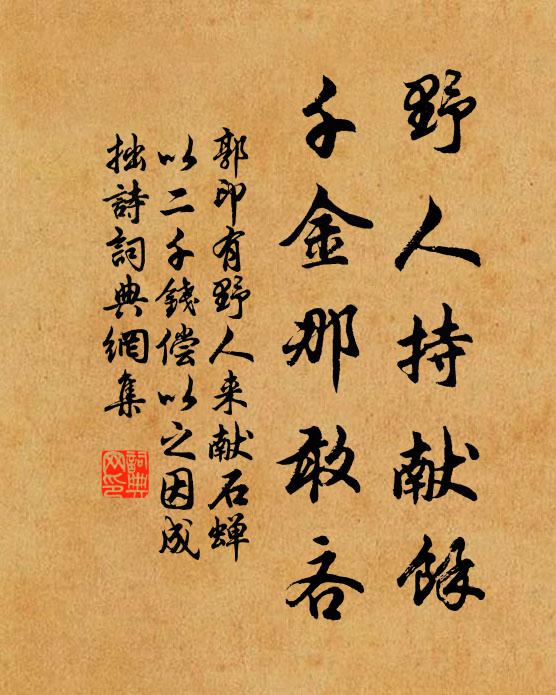 野人持献餘
千金那敢吝
郭印有野人来献石蝉
以二千錢偿以之因成
拙詩詞典網集
詞典
网印